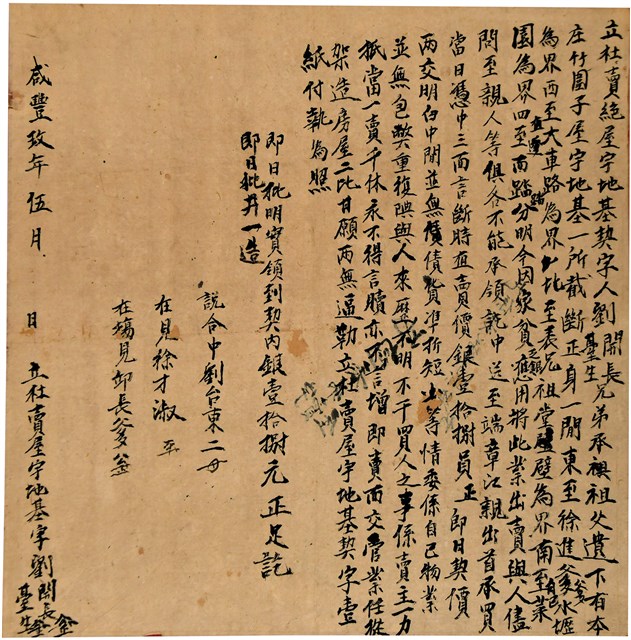 立杜賣絕屋宇地基契字人劉開長臺生兄弟承祖父遺下有本
庄竹圍子屋宇地基一所截斷正身一間東至徐進爹水壢
為界西至大車路為界北至表兄祖堂壁為界南至業
園為界四至面踏分明今因家貧乏銀應用將此業出賣與人儘
問至親人等俱各不能承領託中送至端章江親出首承買
當日憑中三面言斷時值賣價銀壹拾捌員正即日契價
兩交明白中間並無債貨準折短少等情委係自己物業
並無包弊重復與人來歷不明不干買人之事係賣主一力
抵當一賣千休永不得言贖亦不言增即賣而交管業任從
架造房屋二比甘願兩無逼勒立杜賣屋宇地基契字壹
紙付執為照
即日批明實領到契內銀壹拾捌元正足訖
即日批并一造
說合中劉台東
在見徐才淑
在場見邱長爹
咸豐玖年伍月 日 立杜賣屋宇地基字劉開長臺生